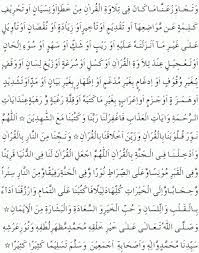 وَتَجَاوَزْ عَنَّا مَا كَانَ فِي تِلَاوَةِ الْقُرْآنِ مِنْ خَطَاٍ اَوْ نِسْيَانٍ اَوْ تَحْرِيفِ
كَلِمَةٍ عَنْ مَوَاضِعِهَا اَوْ تَقْدِيمٍ اَوْ تَأْخِيرٍ اَوْ زِيَادَةٍ اَوْ نُقْصَانٍ اَوْ تَأْوِيلٍ
عَلَى غَيْرِ مَا اَنْزَلْتَهُ عَلَيْهِ اَوْ رَيْبٍ اَوْ شَكٍّ اَوْ سَهْوٍ اَوْ سُوءِ اِلْحَانٍ
اَوْ تَعْجِيلٍ عِنْدَ تِلَاوَةِ الْقُرْآنِ اَوْ كَسَلٍ اَوْ سُرْعَةٍ اَوْ زَيْغِ لِسَانٍ اَوْ وَقْفٍ
بِغَيْرِ وُقُوفٍ اَوْ اِدْغَامٍ بِغَيْرِ مُدْغَمٍ اَوْ اِظْهَارٍ بِغَيْرِ بَيَانٍ اَوْ مَدٍّ اَوْ تَشْدِيدٍ
اَوْ هَمْزَةٍ اَوْ جَزْمٍ اَوْ اِعْرَابٍ بِغَيْرِ مَا كَتَبَهُ اَوْ قِلَّةِ رَغْبَةٍ وَرَهْبَةٍ عِنْدَ اٰيَاتِ
الرَّحْمَةِ وَاٰيَاتِ الْعَذَابِ فَاغْفِرْ لَنَا رَبَّنَا وَاكْتُبْنَا مَعَ الشَّاهِدِينَ ☆ اَللّٰهُمَّ
نَوِّرْ قُلُوبَنَا بِالْقُرْآنِ وَزَيِّنْ اَخْلَاقَنَا بِالْقُرْآنِ وَنَجِّنَا مِنَ النَّارِ بِالْقُرْآنِ
وَاَدْخِلْنَا فِي الْجَنَّةِ بِالْقُرْآنِ اَللّٰهُمَّ اجْعَلِ الْقُرْآنَ لَنَا فِي الدُّنْيَا قَرِينًا
وَفِي الْقَبْرِ مُونِسًا وَعَلَى الصِّرَاطِ نُورًا وَفِي الْجَنَّةِ رَفِيقًا وَمِنَ النَّارِ سِتْرًا
وَحِجَابًا وَاِلَى الْخَيْرَاتِ كُلِّهَا دَلِيلًا فَاكْتُبْنَا عَلَى التَّمَامِ وَارْزُقْنَا اَدَاءً
بِالْقَلْبِ وَاللِّسَانِ وَحُبِّ الْخَيْرِ وَالسَّعَادَةِ وَالْبَشَارَةِ مِنَ الْاِيْمَانِ ☆
وَصَلَّى اللّٰهُ تَعَالَى عَلَى خَيْرِ خَلْقِهِ مُحَمَّدٍ مَظْهَرِ لُطْفِهِ وَنُورِ عَرْشِهِ
سَيِّدِنَا مُحَمَّدٍ وَاٰلِهِ وَاَصْحَابِهِ اَجْمَعِينَ وَسَلَّمَ تَسْلِيمًا كَثِيرًا كَثِيرًا ☆